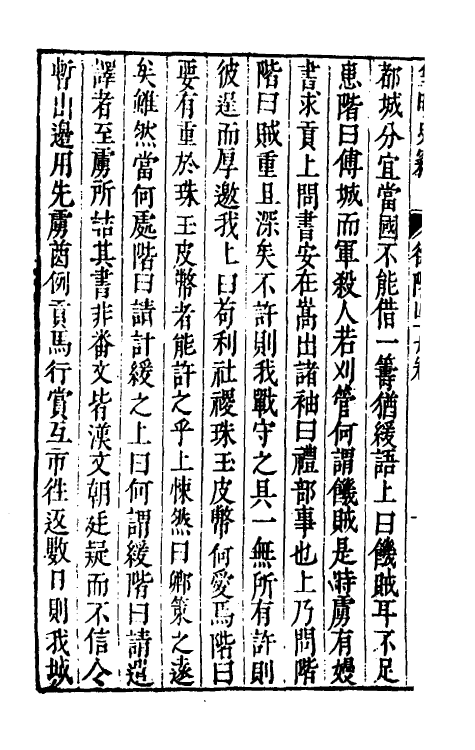 都城分宜當國不能借一籌猶緩語上曰饑賊耳不足
患階曰傅城而軍殺人若刈管何謂饑賊是時虜有嫚
書求貢上問書安在嵩出諸袖曰禮部事也上乃問階
階曰賊重且深矣不許則我戰守之具一無所有許則
彼逞而厚邀我上曰苟利社稷珠玉皮幣何愛焉階曰
要有重於珠玉皮幣者能許之乎上悚然曰卿策之遠
矣雖然當何處階曰請計緩之上曰何謂緩階曰請遣
譯者至虜所詰其書非番文皆漢文朝廷疑而不信令
暫出邊用先虜酋例貢馬行賞互市徃返數日則我城